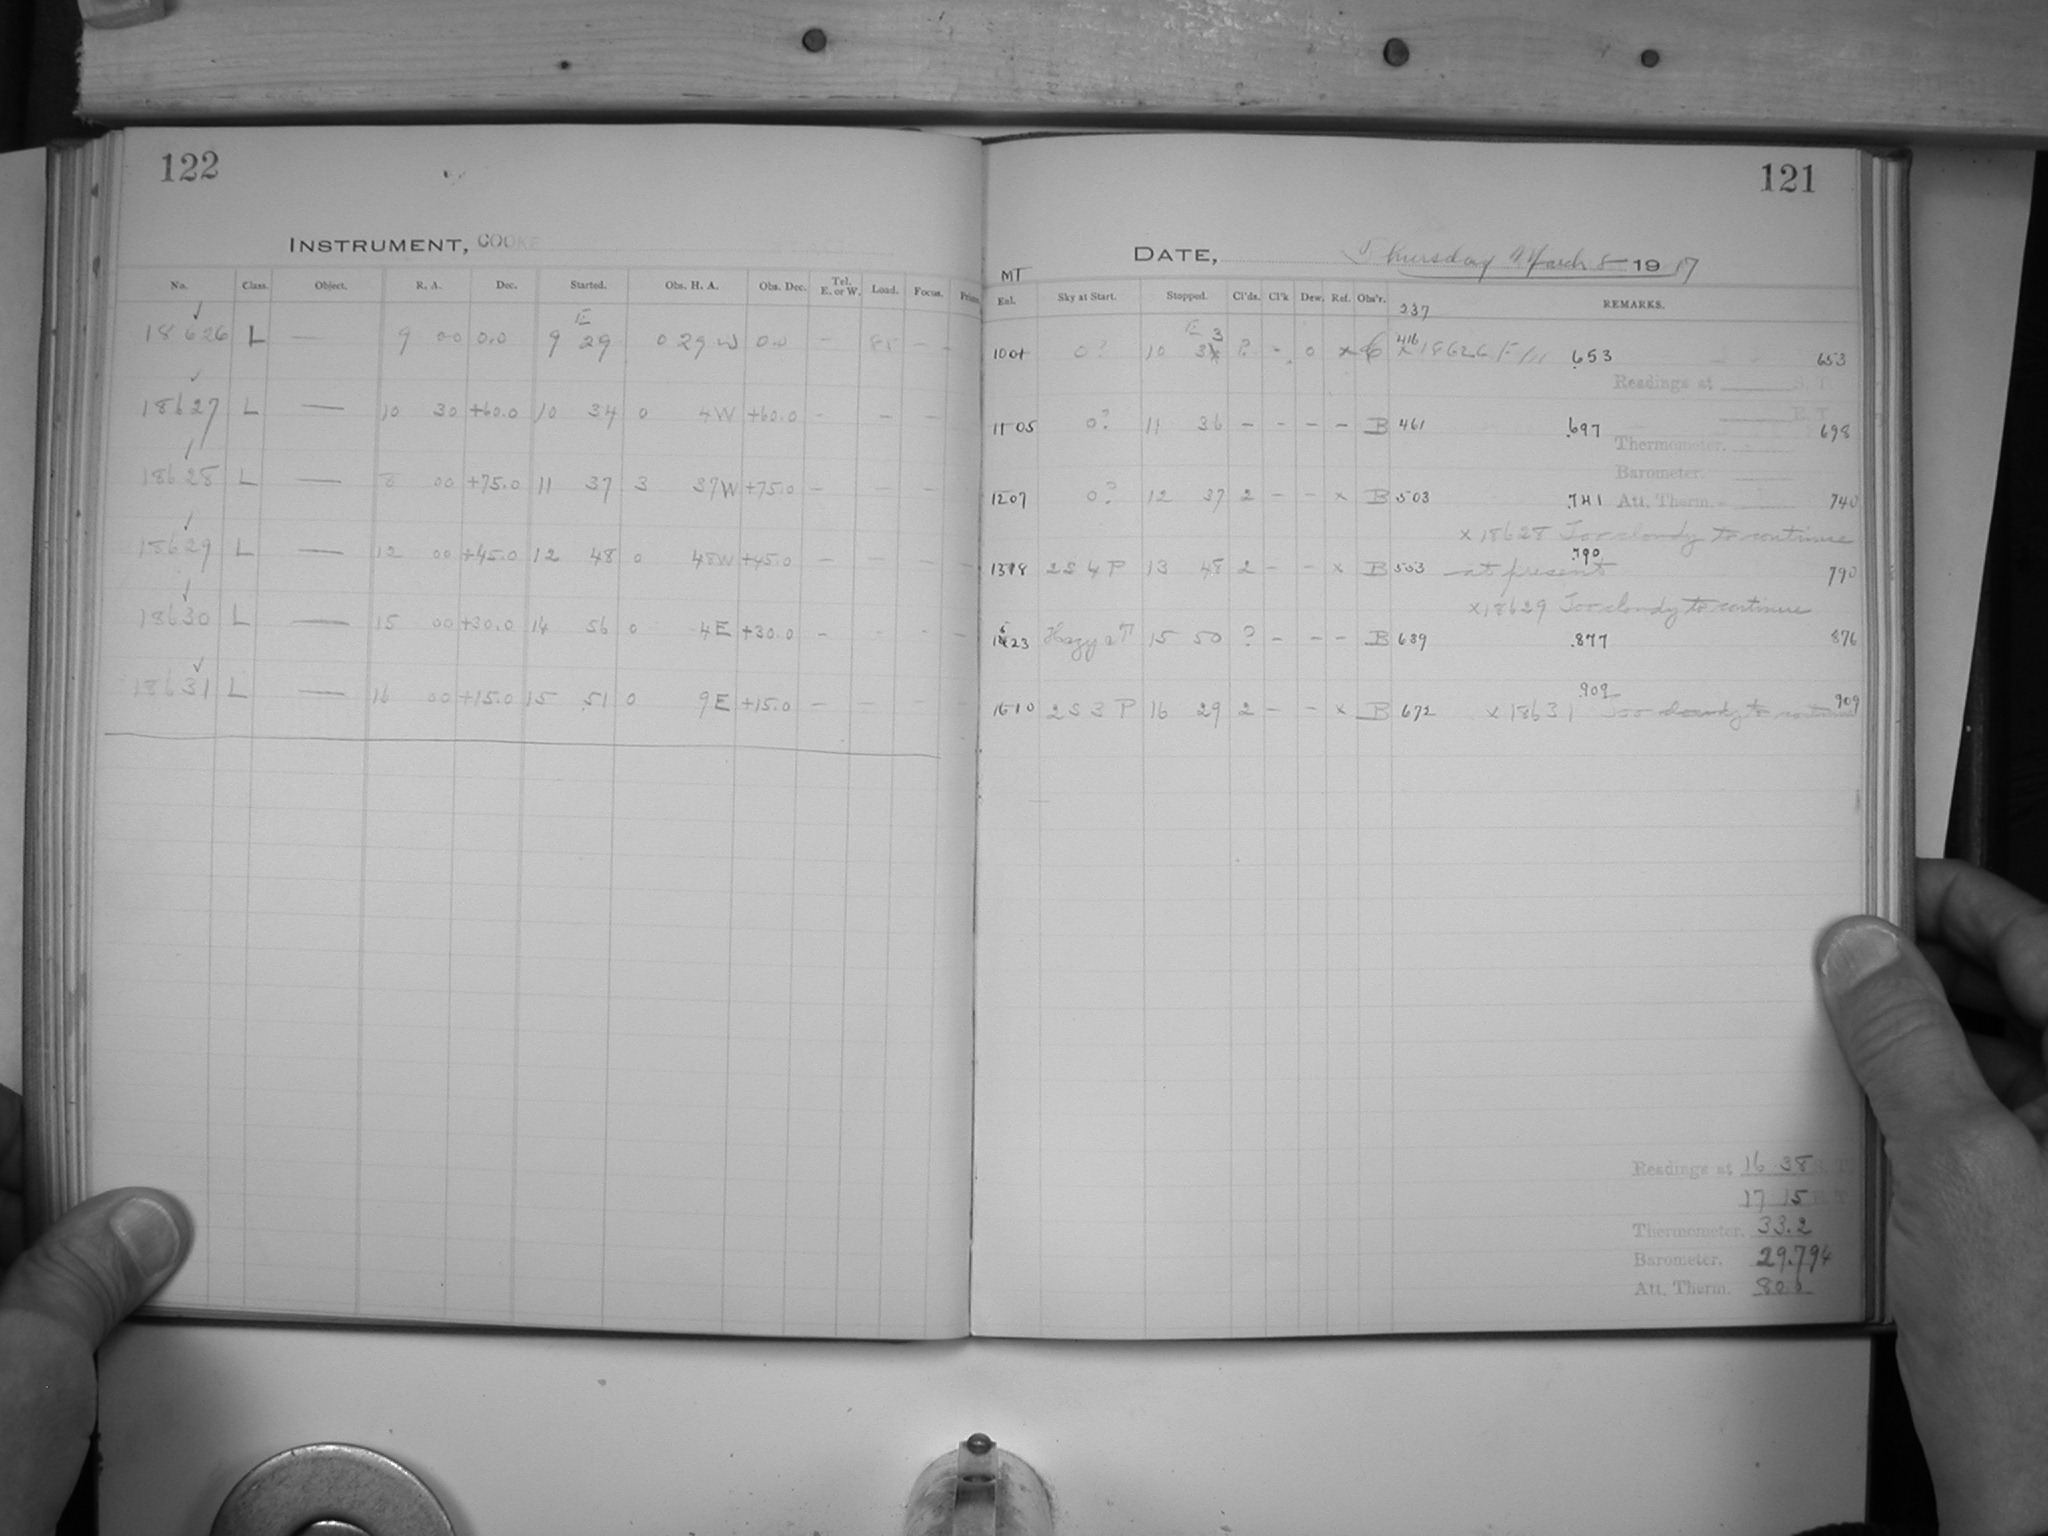 122
INSTRUMENT, COOKE
No. Class. Object. R. A. Dec. Started. Obs. H. A. Obs. Dec. Tel. E. or W. Load. Focus. Prism.
E
18626 L — 9 00 0.0 9 29 0 29 W 0.0 — 85 — —
18627 L — 10 30 +60.0 10 34 0 4W +60.0 — — — —
18628 L — 8 00 +75.0 11 37 3 37W +75.0 — — — —
18629 L — 12 00 +45.0 12 48 0 48W +45.0 — — — —
18630 L — 15 00 +30.0 14 56 0 4E +30.0 — - - —
18631 L — 16 00 +15.0 15 51 0 9E +15.0 — — — —
121
DATE, Thursday March 8 1917
MT
Enl. Sky at Start. Stopped. Cl'ds. Cl'k Dew. Ref. Obs'r. REMARKS.
237
E 3
1001 0? 10 ? - 0 x 416 x 18626 653 653
Readings at S. T.
1105 0? 11 36 — - — — B 461 .697 698
Thermometer.
Barometer.
1207 0? 12 37 2 — — x B 503 .741 Att. Therm. 740
x 18628 Too cloudy to continue
2S4P 13 48 2 — — x B 503 at present .790 790
x 18629 Too cloudy to continue
23 Hazy 15 50 ? — — — B 639 .877 876
2S3P 16 29 2 — — x B 672 x 18631 Too cloudy to continue .909 909
Readings at 16 38 S. T.
17 15
Thermometer. 33.2
Barometer. 29.794
Att. Therm. 80.0